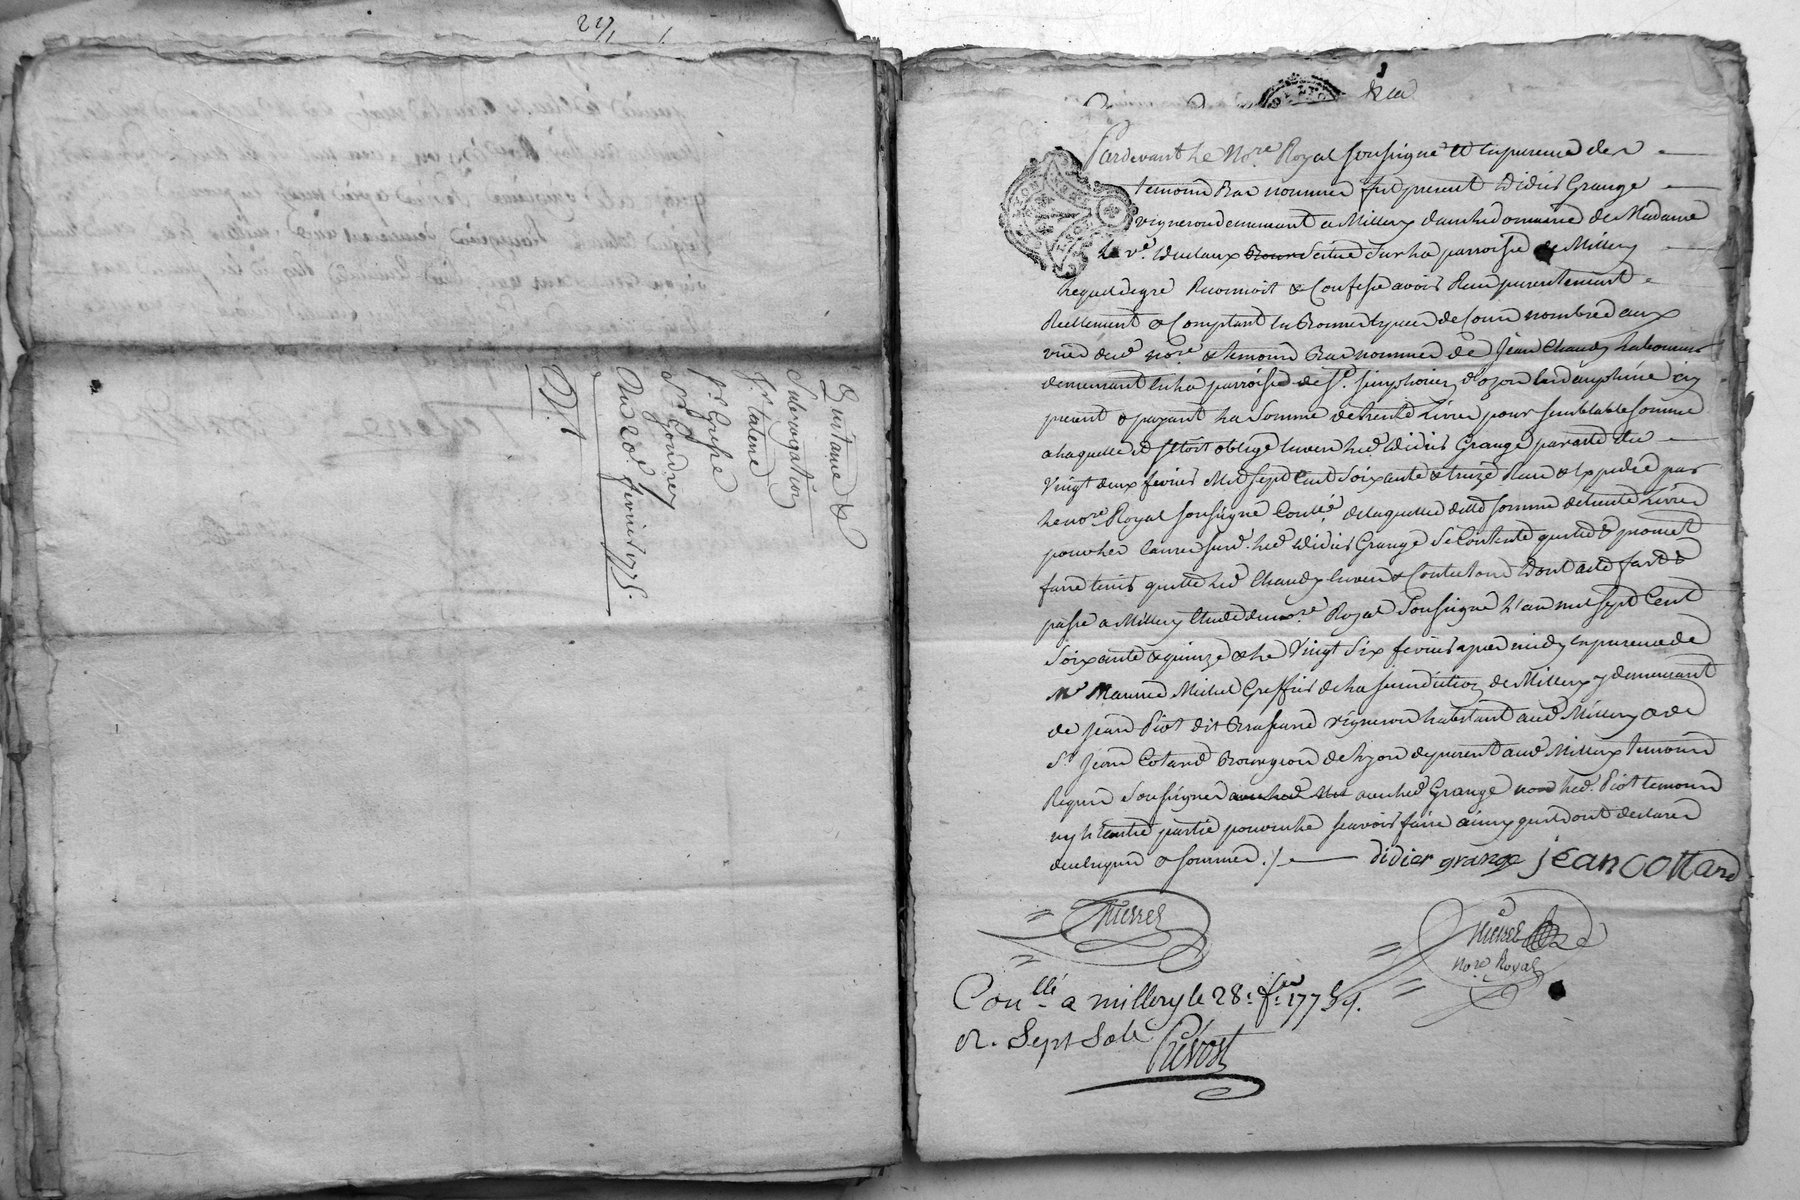 27/1
Quittance &
Subrogation
Sr. Talene
Sr. Greffe
Sr. Gondrey
Du 20e. fevrier 1775.
D: t
Pardevant Le Nore. Royal soussigné Et En presence des
temoins Bas nommés fut present Didier Grange
vigneron demeurant a Millery dans le domaine de Madame
La ve. Duclaux scitué sur la parroisse de Millery
Lequel de gré Reconnoit & Confesse avoir Recu presentement
Reellement & Comptant En Bonnes Especes de Cours nombrées aux
vües dud. nore. & temoins Bas nommés de Jean Chaudy Laboureur
demeurant En la parroisse de St. Simphorien d'ozon En dauphiné cy
present & payant La Somme de trente Livres pour semblable somme
a laquelle il s'etoit obligé Envers Led. Didier Grange par acte du
Vingt deux fevrier Mil sept Cent Soixante & treize Recu & Expedié par
Le nore. Royal soussigné Conllé. de laquelle ditte somme de trente Livres
Led. Didier Grange se Contente quitte & promet
faire tenir quitte Led. Chaudy Envers & Contre tous Dont acte fait &
passé a Millery Etude du nore. Royal Soussigné L'an mil sept Cent
Soixante & quinze & Le Vingt Six fevrier apres midy En presence de
Mr. Maurice Michel Greffier de la jurisdiction de Millery y demeurant
de Jean Piot dit vigneron habitant aud. Millery & de
Sr. Jean Cotard Bourgeois de Lyon de present aud. Millery temoins
Requis Soussignés avec Led. Grange non Led. Piot temoin
ny L'autre partie pour ne Le scavoir faire ainsy qu'ils ont declaré
de ce Enquis & sommés ./.  didier grange jean cottard
nore Royal
Conllé. a millery le 28. fer. 1775
R. Sept Sols Prévost